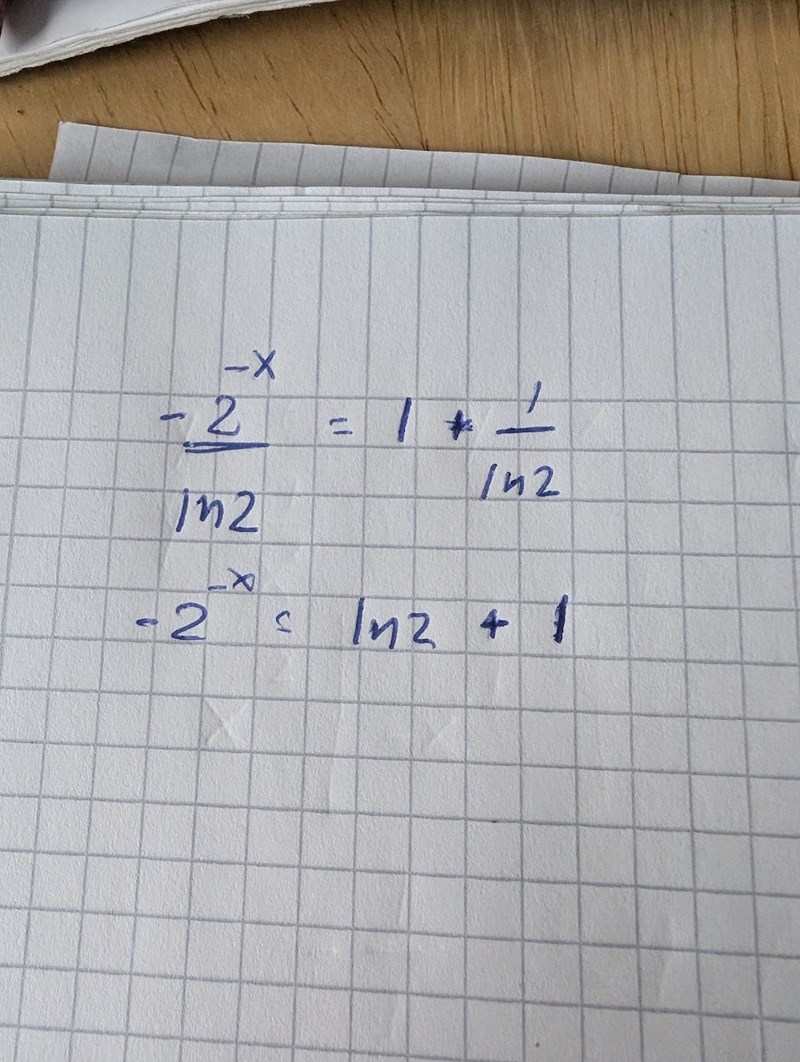 -2^-x / ln2 = 1 + 1 / ln2
-2^-x = ln2 + 1